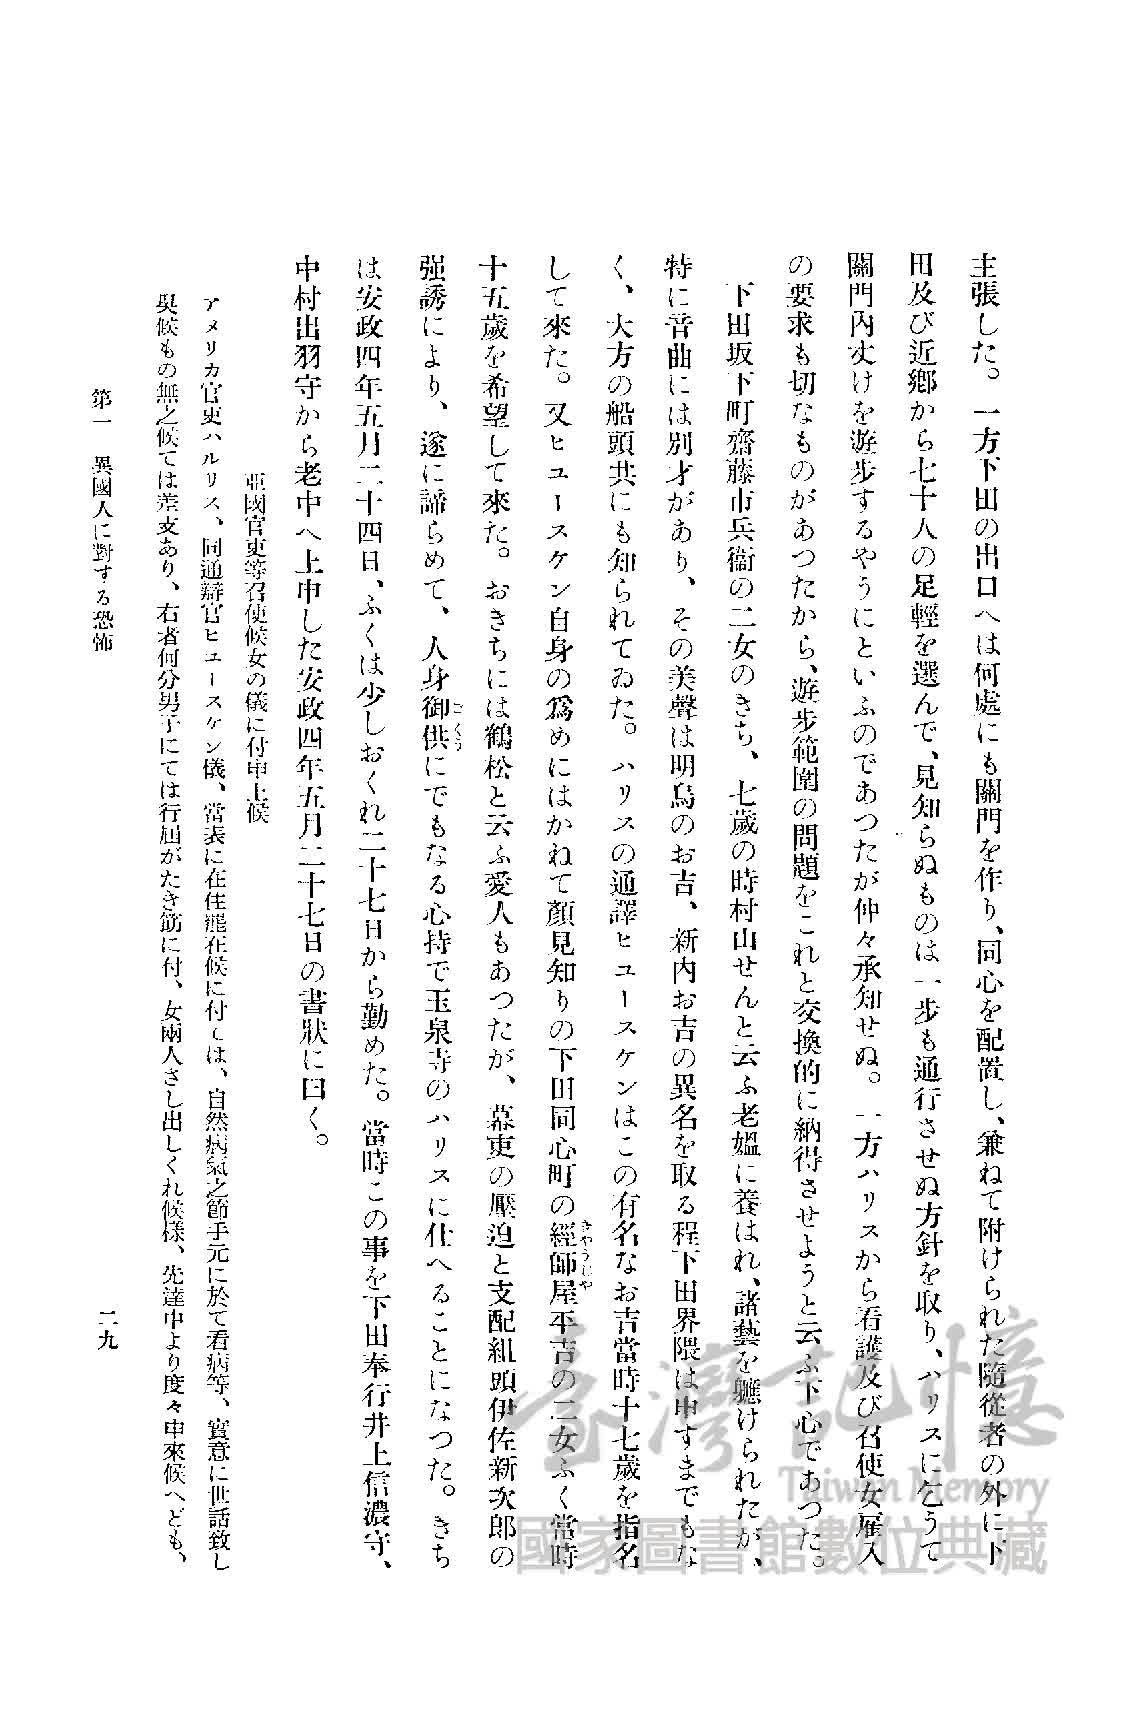 主張した。一方下田の出口へは何處にも關門を作り、同心を配置し、兼ねて附けられた隨從者の外に下
田及び近鄕から七十人の足輕を選んで、見知らぬものは一步も通行させぬ方針を取り、ハリスに乞うて
關門內丈けを遊步するやうにといふのであつたが仲々承知せぬ。一方ハリスから看護及び召使女雇入
の要求も切なものがあつたから、遊步範圍の問題をこれと交換的に納得させようと云ふ下心であつた。
下田坂下町齋藤市兵衞の二女のきち、七歲の時村山せんと云ふ老媼に養はれ、諸藝を軈けられたが、
特に音曲には別才があり、その美聲は明烏のお吉、新內お吉の異名を取る程下田界隈は申すまでもな
く、大方の船頭共にも知られてゐた。ハリスの通譯ヒユースケンはこの有名なお吉當時十七歲を指名
して來た。又ヒユースケン自身の爲めにはかねて顏見知りの下田同心町の經師屋平吉の二女ふく當時
きやうじや
十五歲を希望して來た。おきちには鶴松と云ふ愛人もあつたが、幕吏の壓迫と支配組頭伊佐新次郎の
强誘により、遂に諦らめて、人身御供にでもなる心持で玉泉寺のハリスに仕へることになつた。きち
ごくう
は安政四年五月二十四日、ふくは少しおくれ二十七日から勤めた。當時この事を下田奉行井上信濃守、
中村出羽守から老中へ上申した安政四年五月二十七日の書狀に曰く。
亞國官吏等召使候女の儀に付申上候
アメリカ官吏ハルリス、同通辯官ヒユースケン儀、當表に在住罷在候に付ては、自然病氣之節手元に於て看病等、實意に世話致し
吳候もの無之候ては差支あり、右者何分男子にては行屆がたき筋に付、女兩人さし出しくれ候樣、先達中より度々申來候へども、
第一 異國人に對する恐怖
二九
臺灣記憶
Taiwan Memory
國家圖書館數位典藏